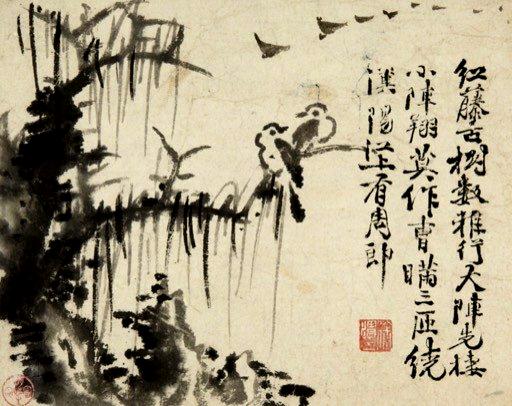 紅藤古樹數鴉行大陣先棲
小陣翔莫作曹瞞三匝繞
漢陽江上有周郎